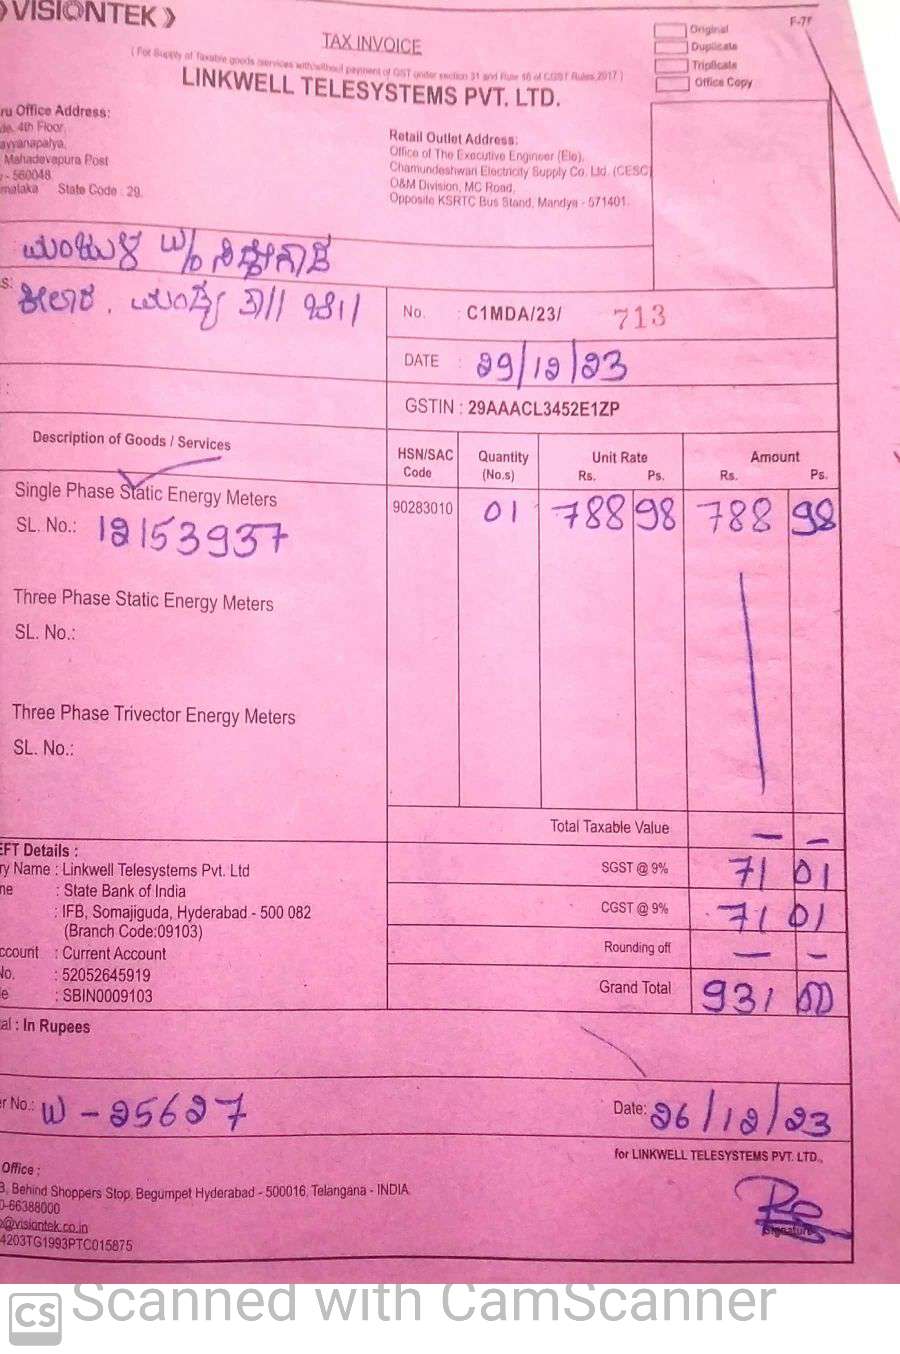 VISIONTEK
F-7f
TAX INVOICE
Original
Duplicate
Triplicate
Office Copy
( For Supply of Taxable goods /services with/without payment of GST under section 31 and Rule 46 of CGST Rules, 2017 )
LINKWELL TELESYSTEMS PVT. LTD.
ru Office Address:
de, 4th Floor,
ayyanapalya,
Mahadevapura Post
- 560048.
rnataka State Code : 29.
Retail Outlet Address:
Office of The Executive Engineer (Ele),
Chamundeshwari Electricity Supply Co. Ltd. (CESC)
O&M Division, MC Road,
Opposite KSRTC Bus Stand, Mandya - 571401.
ಮಂಜುಳ W/o
s:
ಕೀಲಾರ. ಮಂಡ್ಯ ತಾ|| ಜಿ||
No. : C1MDA/23/ 713
DATE : 29/12/23
GSTIN : 29AAACL3452E1ZP
Description of Goods / Services
HSN/SAC Code
Quantity (No.s)
Unit Rate
Rs. Ps.
Amount
Rs. Ps.
Single Phase Static Energy Meters
90283010 01 788 98 788 98
SL. No.: 12153937
Three Phase Static Energy Meters
SL. No.:
Three Phase Trivector Energy Meters
SL. No.:
Total Taxable Value — —
SGST @ 9% 71 01
CGST @ 9% 71 01
Rounding off — —
Grand Total 931 00
EFT Details :
ry Name : Linkwell Telesystems Pvt. Ltd
me : State Bank of India
: IFB, Somajiguda, Hyderabad - 500 082
(Branch Code:09103)
ccount : Current Account
No. : 52052645919
e : SBIN0009103
al : In Rupees
er No.: W - 25627
Date: 26/12/23
for LINKWELL TELESYSTEMS PVT. LTD.,
Signature
Office :
3, Behind Shoppers Stop, Begumpet Hyderabad - 500016, Telangana - INDIA
0-66388000
@visiontek.co.in
4203TG1993PTC015875
CS Scanned with CamScanner